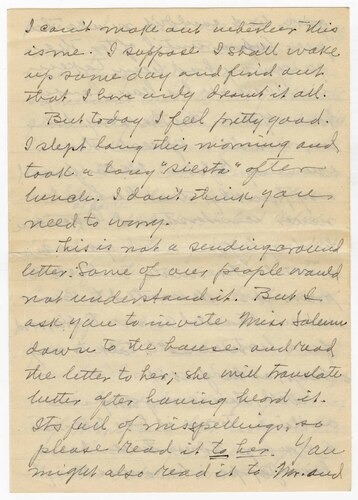 I can't make out whether this
is me. I suppose I shall wake
up some day and find out
that I have only dreamt it all.
But today I feel pretty good.
I slept long this morning and
took a long "siesta" after
lunch. I don't think you
need to worry.
This is not a sending around
letter. Some of our people would
not understand it. But I
ask you to invite Miss Salemn
down to the house and read
the letter to her; she will translate
better after having heard it.
Its full of misspellings, so
please read it to her. You
might also read it to Mr. and